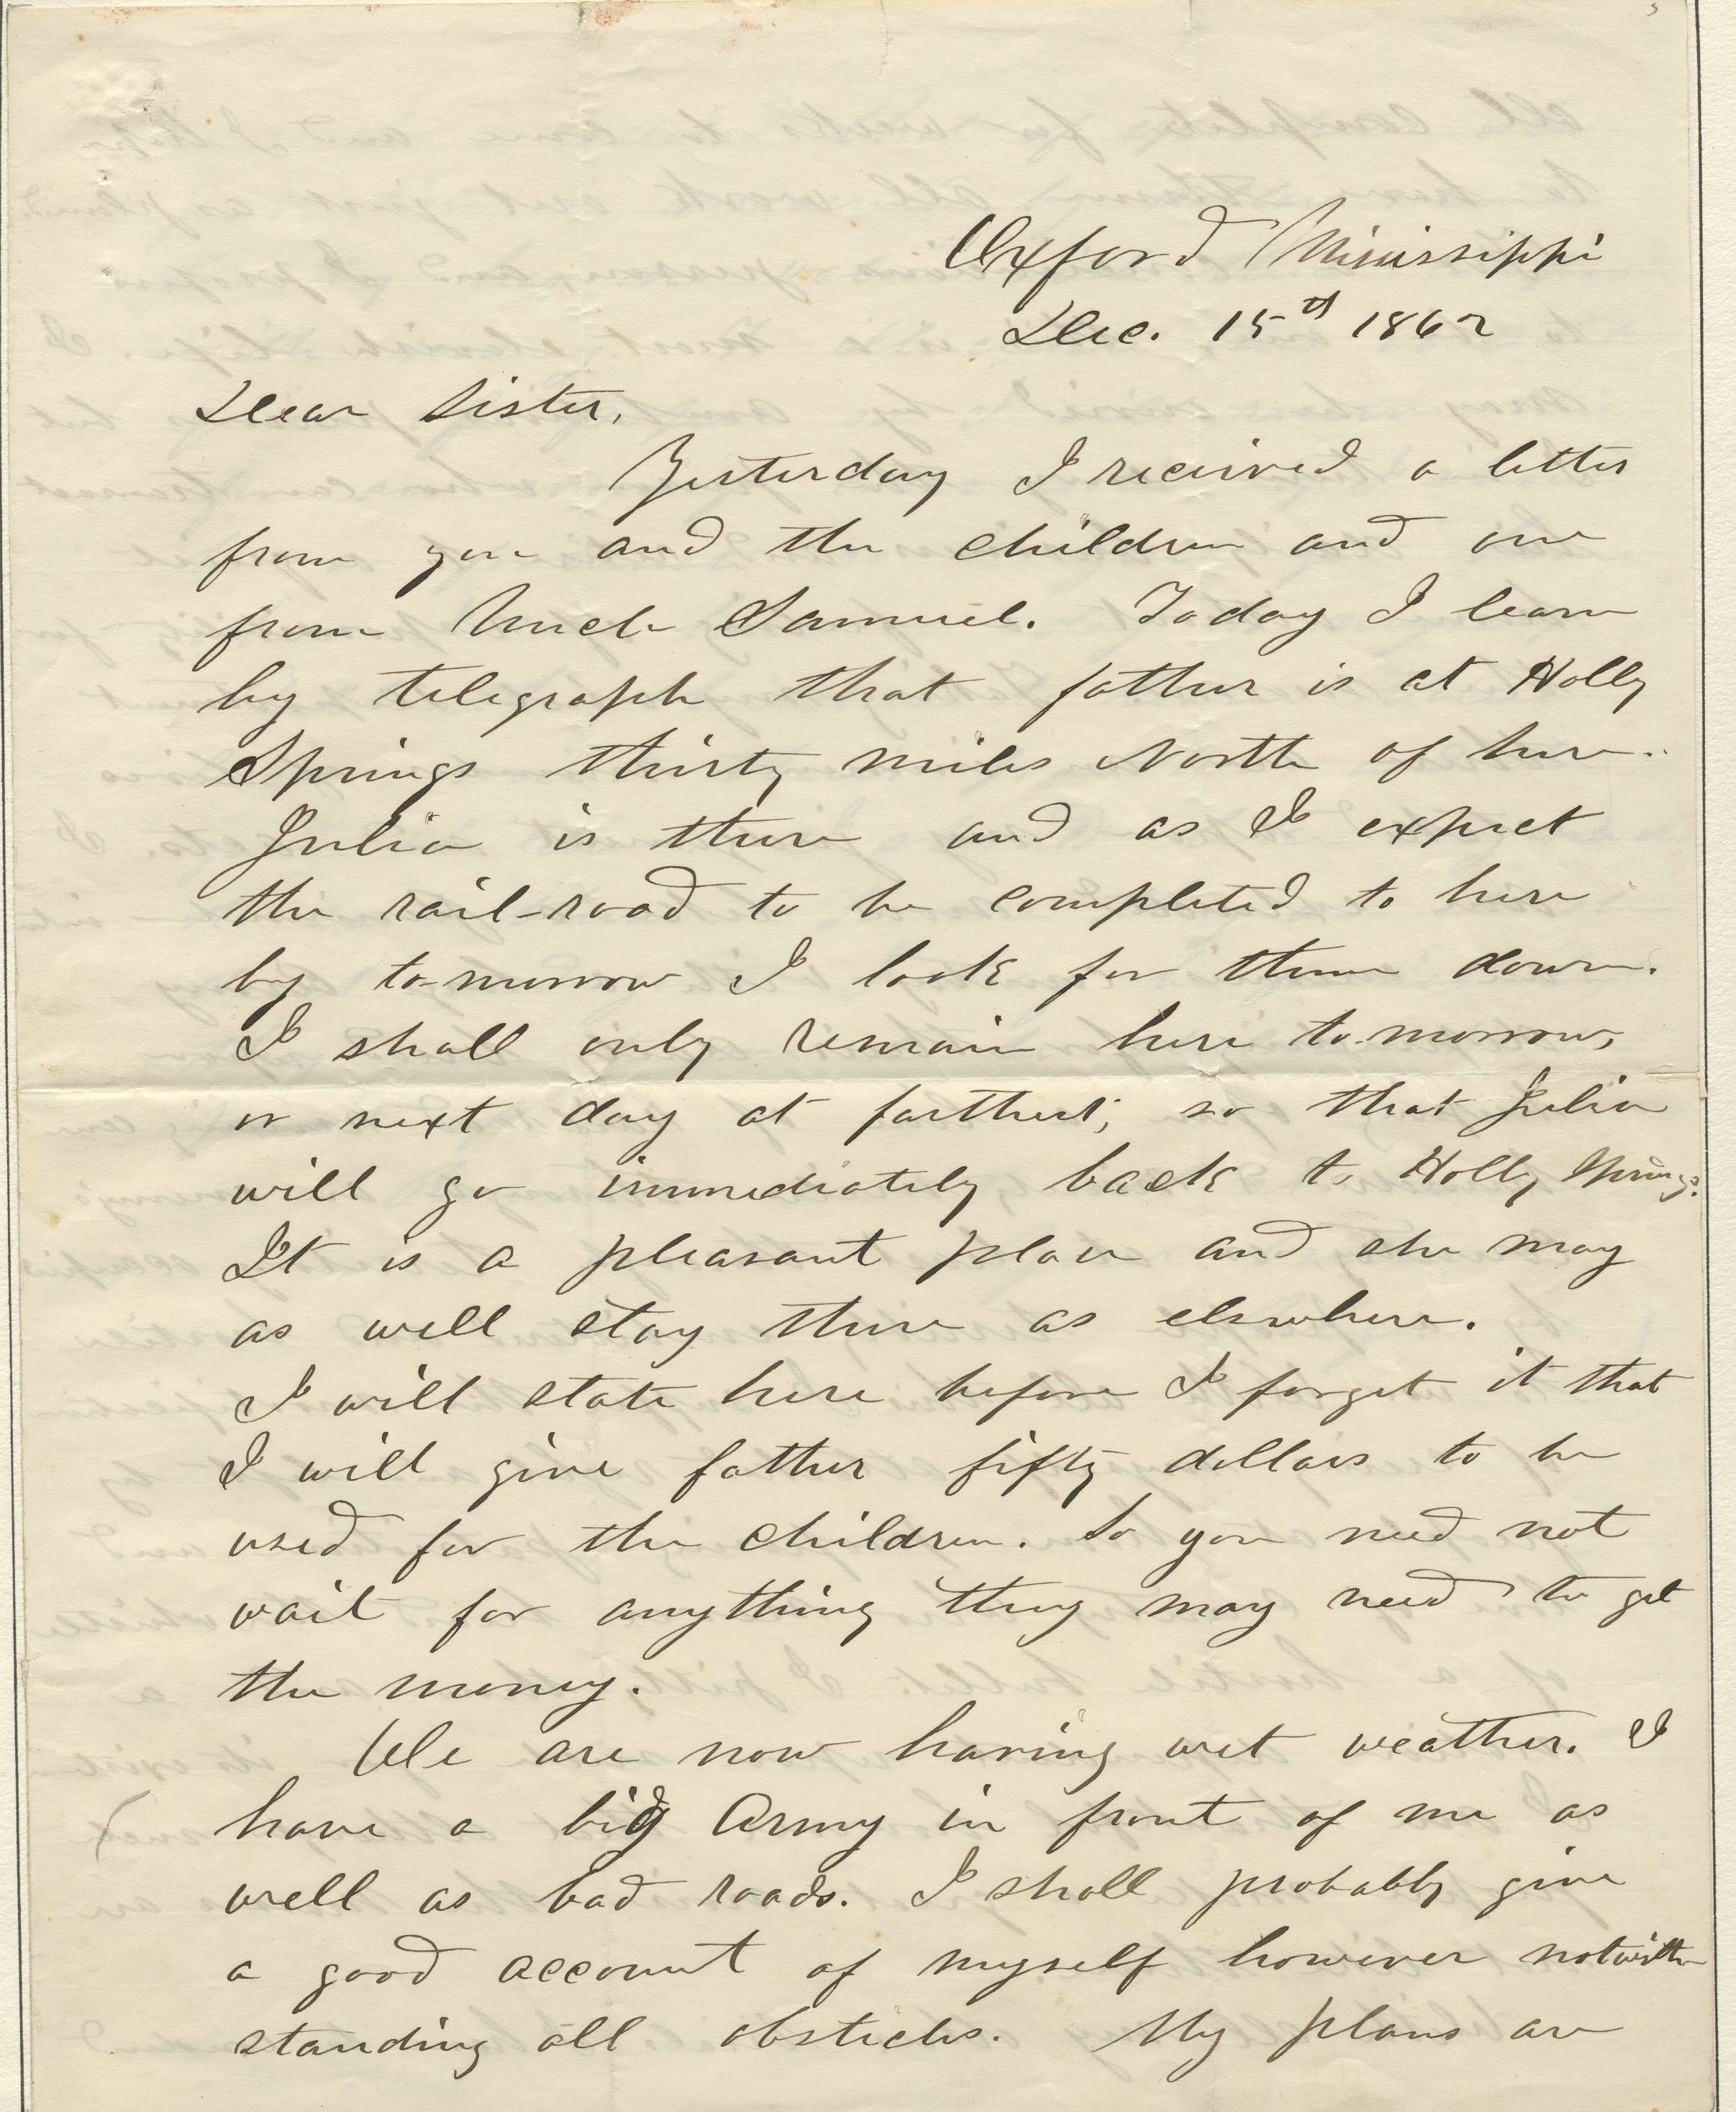 Oxford Mississippi
Dec. 15th 1862
Dear Sister,
Yesterday I received a letter
from you and the children and one
from Uncle Samuel. Today I learn
by telegraph that father is at Holly
Springs thirty miles North of here.
Julia is there and as I expect
the rail-road to be completed to here
by to-morrow I look for them down.
I shall only remain here to-morrow,
or next day at farthest; so that Julia
will go immediately back to Holly Springs.
It is a pleasant place and she may
as well stay there as elsewhere.
I will state here before I forget it that
I will give father fifty dollars to be
used for the children. So you need not
wait for anything they may need to get
the money.
We are now having wet weather. I
have a big Army in front of me as
well as bad roads. I shall probably give
a good account of myself however notwith
standing all obsticles. My plans are